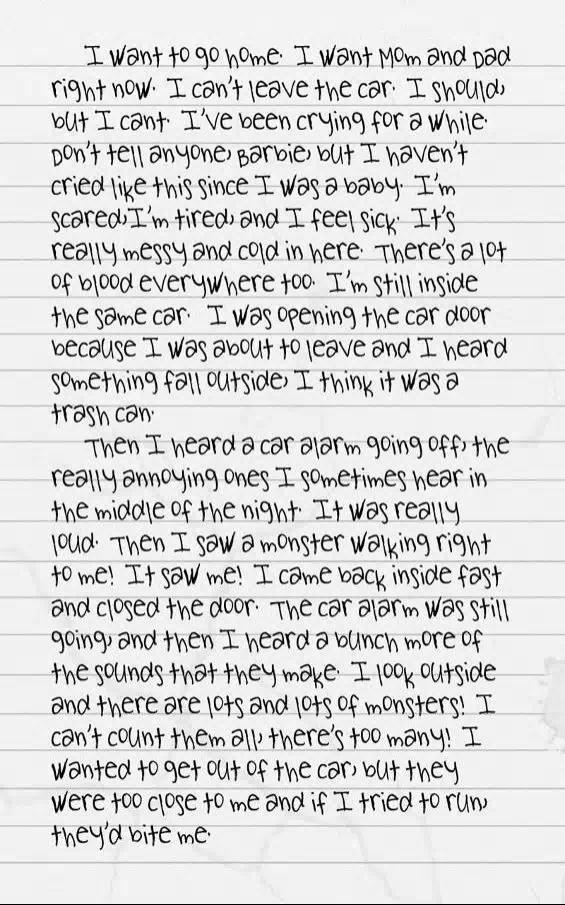 I want to go home. I want Mom and Dad
right now. I can't leave the car. I should,
but I cant. I've been crying for a while.
Don't tell anyone, Barbie, but I haven't
cried like this since I was a baby. I'm
scared, I'm tired, and I feel sick. It's
really messy and cold in here. There's a lot
of blood everywhere too. I'm still inside
the same car. I was opening the car door
because I was about to leave and I heard
something fall outside, I think it was a
trash can.
Then I heard a car alarm going off, the
really annoying ones I sometimes hear in
the middle of the night. It was really
loud. Then I saw a monster walking right
to me! It saw me! I came back inside fast
and closed the door. The car alarm was still
going, and then I heard a bunch more of
the sounds that they make. I look outside
and there are lots and lots of monsters! I
can't count them all, there's too many! I
wanted to get out of the car, but they
were too close to me and if I tried to run,
they'd bite me.